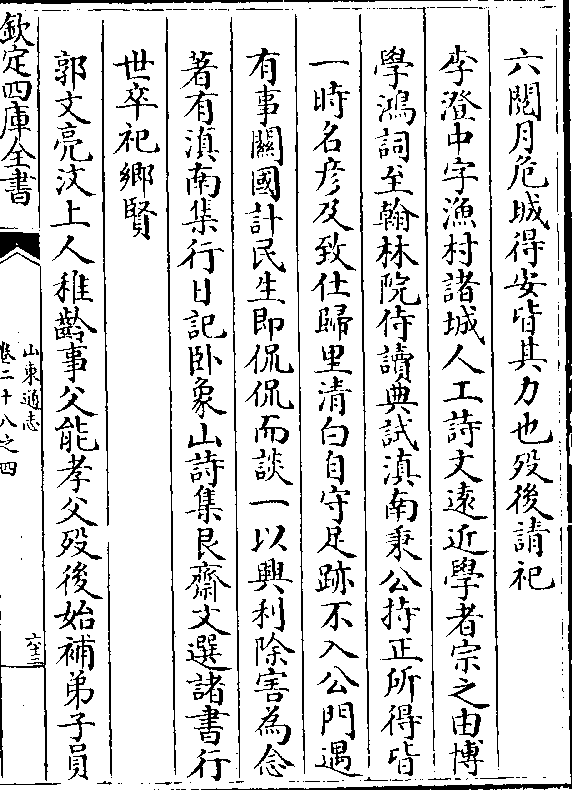 六閱月危城得安皆其力也殁後請祀
李澄中字漁村諸城人工詩文遠近學者宗之由博
學鴻詞至翰林院侍讀典試滇南秉公持正所得皆
一時名彦及致仕歸里清白自守足跡不入公門遇
有事關國計民生即侃侃而談一以興利除害為念
著有滇南集行日記卧象山詩集艮齋文選諸書行
世卒祀鄉賢
郭文亮汶上人稚齡事父能孝父殁後始補弟子員
欽定四庫全書
山東通志
卷二十八之四
六十三